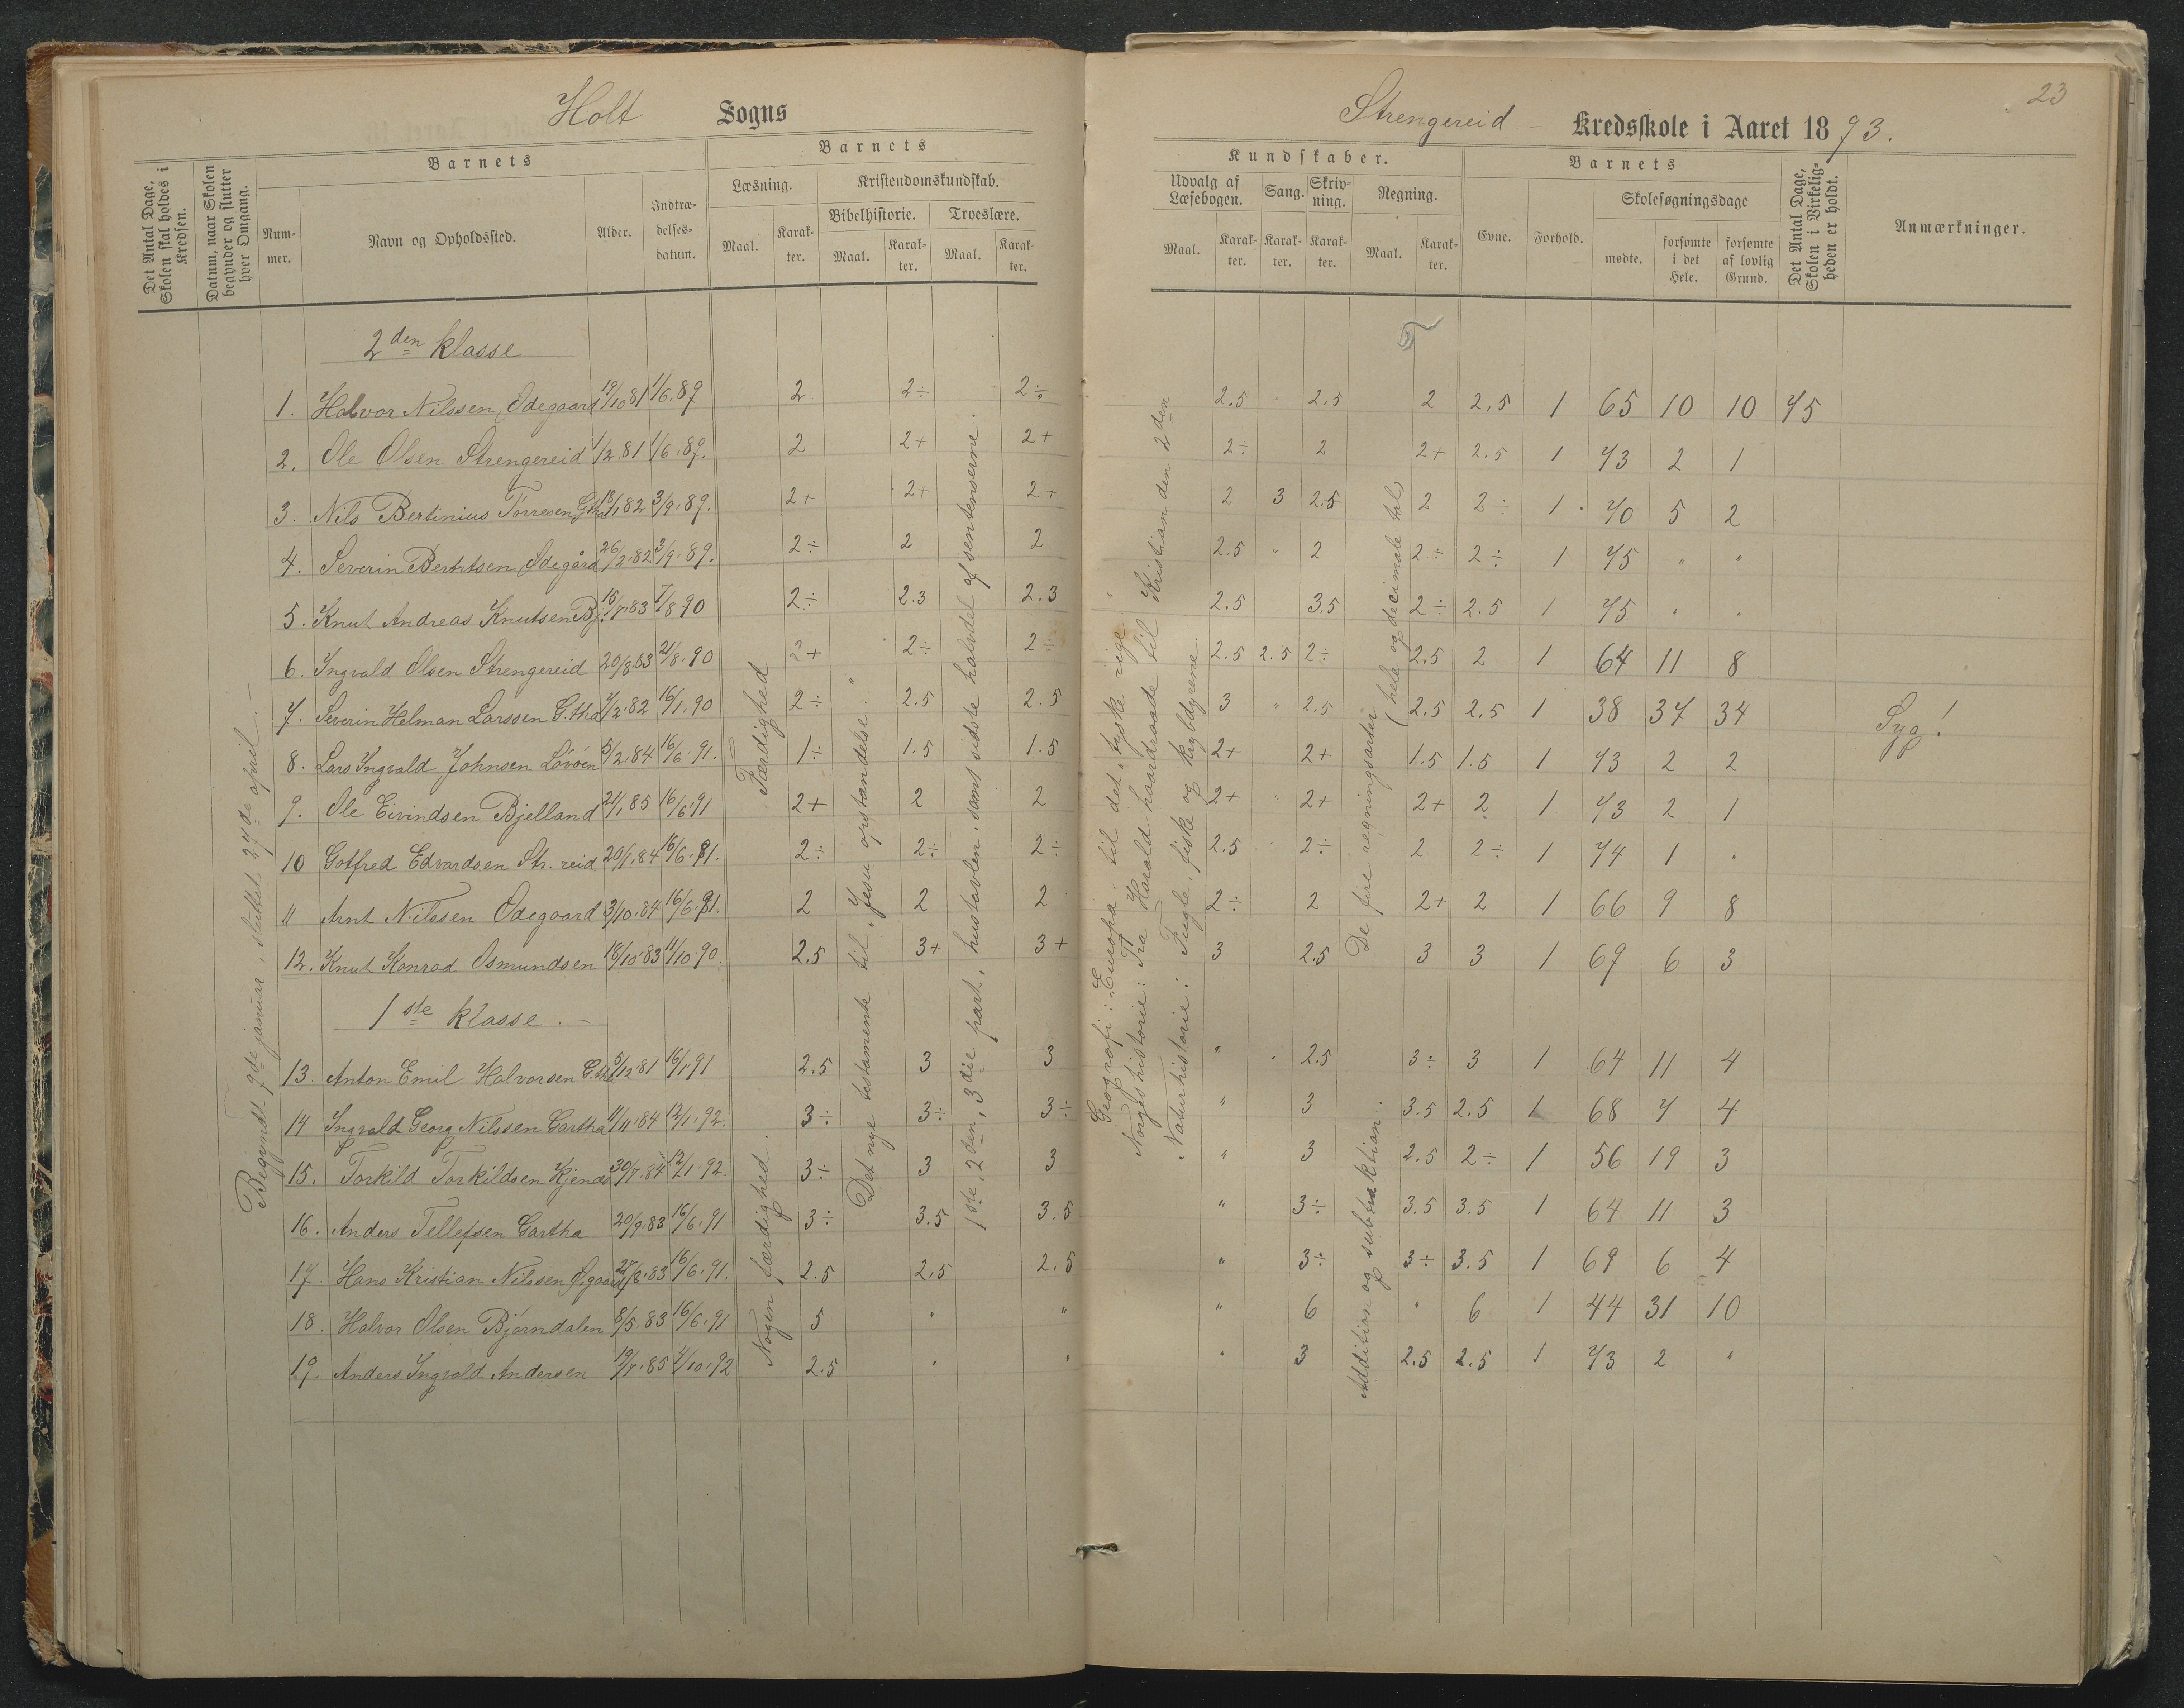 Holt Sogns
Det Antal Dage, Skolen skal holdes i Kredsen.
Datum, naar Skolen begynder og slutter hver Omgang.
Barnets
Nummer.
Navn og Opholdssted.
Alder.
Indtrædelsesdatum.
Barnets
Læsning.
Kristendomskundskab.
Bibelhistorie. Troeslære.
Maal. Karakter. Maal. Karakter. Maal. Karakter.
Begyndt 9de januar, sluttet 27de april. –
2den klasse
1. Halvor Nilssen, Ødegaard 19/10 81 1/6.89 2 2÷ 2÷
2. Ole Olsen Strengereid 1/2.81 1/6.89. 2 2+ 2+
3. Nils Bertinius Torresen G.tha 18/1 82 3/9.89. 2+ 2+ 2+
4. Severin Berntsen, Ødegård 26/2.82 3/9.89. 2÷ 2 2
5. Knut Andreas Knutsen Bj. 15/7.83 7/8 90 2÷ 2.3 2.3
6. Ingvald Olsen Strengereid 20/8.83 21/8.90 2+ 2÷ 2÷
7. Severin Helman Larssen G.tha 7/2.82 16/1.90 2÷ 2.5 2.5
8. Lars Ingvald Johnsen Lövöen 5/2.84 16/6.91. 1÷ 1.5 1.5
9. Ole Eivindsen Bjelland 21/1 85 16/6.91 2+ 2 2
10 Gotfred Edvardsen Str. reid 20/1.84 16/6.91. 2÷ 2÷ 2÷
11 Arnt Nilssen Ødegaard 3/10.84 16/6.91. 2 2 2
12. Knut Konrad Osmundsen 18/10.83 11/10.90. 2.5 3+ 3+
1ste klasse. –
13. Anton Emil Halvorsen G.tha /12.81 16/1 91 2.5 3 3
14 Ingvald Georg Nilssen Gartha 11/11.84 12/1.92. 3÷ 3÷ 3÷
15. Torkild Torkildsen Kjenes 30/7.84 12/1.92. 3÷ 3 3
16. Anders Tellefsen Gartha 20/9.83 16/6.91 3÷ 3.5 3.5
17. Hans Kristian Nilssen Ø.gaard 27/8.83 16/6.91. 2.5 2.5 2.5
18. Halvor Olsen Bjørndalen 8/5.83 16/6.91 5 " "
19. Anders Ingvald Andersen 19/7.85 7/10.92 2.5 " "
Færdighed
Nogen færdighed.
Det nye testamente til „Jesu opstandelse."
1ste, 2den, 3die part, hustavlen, samt sidste halvdel af sentenserne.
23
Strengereid – Kredsskole i Aaret 1893.
Kundskaber.
Udvalg af Læsebogen. Sang. Skrivning. Regning.
Maal. Karakter. Karakter. Karakter. Maal. Karakter.
Barnets
Evne. Forhold.
Skolesøgningsdage
mødte. forsømte i det Hele. forsømte af lovlig Grund.
Det Antal Dage, Skolen i Virkeligheden er holdt.
Anmærkninger.
2.5 " 2.5 2 2.5 1 65 10 10 75
2÷ 2 2+ 2.5 1 73 2 1
2 3 2.5 2 2÷ 1 70 5 2
2.5 " 2 2÷ 2÷ 1 75 " "
2.5 3.5 2÷ 2.5 1 75 " "
2.5 2.5 2÷ 2.5 2 1 64 11 8
3 " 2.5 2.5 2.5 1 38 37 34 Syg!
2+ 2+ 1.5 1.5 1 73 2 2
2+ " 2+ 2+ 2 1 73 2 1
2.5 2÷ 2 2÷ 1 74 1 "
2÷ 2 2+ 2 1 66 9 8
3 2.5 3 3 1 69 6 3
" " 2.5 3÷ 3 1 64 11 4
" 3 3.5 2.5 1 68 7 4
" 3 2.5 2÷ 1 56 19 3
" 3÷ 3.5 3.5 1 64 11 3
" 3÷ 3÷ 3.5 1 69 6 4
" 6 " 6 1 44 31 10
" 3 2.5 2.5 1 73 2 "
Geografi: Europa. til det „tyske rige".
Norges historie: Fra Harald haardraade til Kristian den 2den
Naturhistorie: Fugle, fiske og krybdyrene.
De fire regningsarter (hele og decimale tal)
Addition og subtraktion.